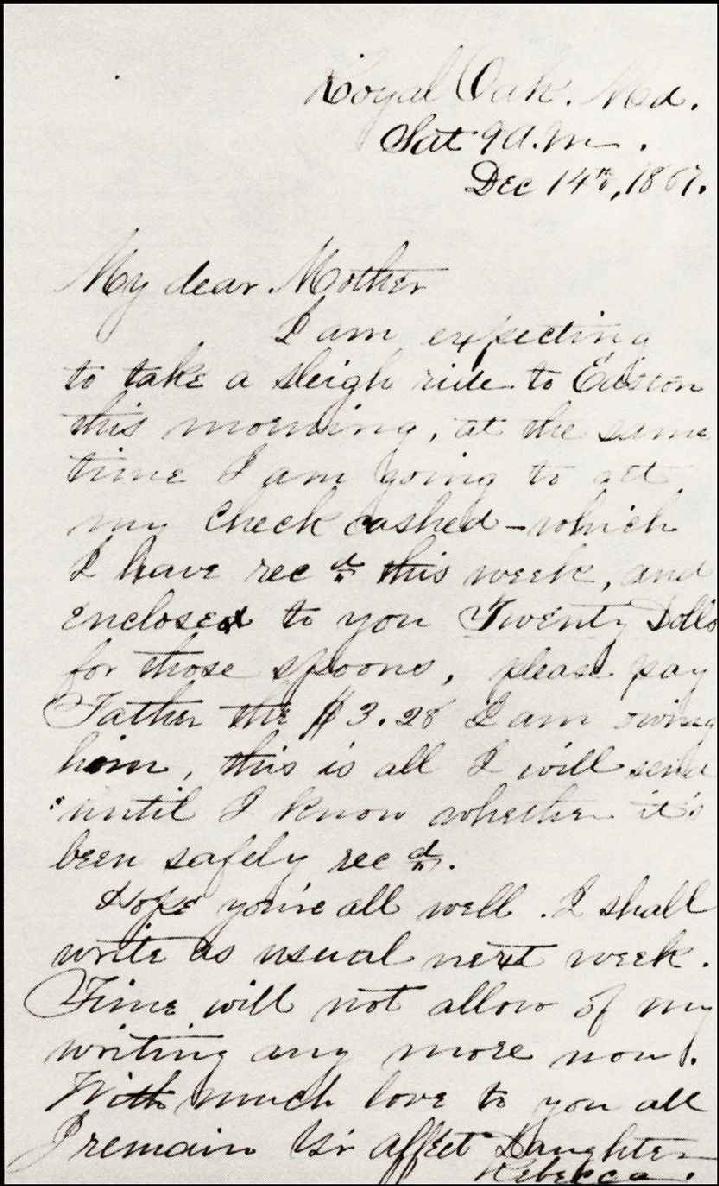 Royal Oak. Md.
Sat 9 a.m.
Dec 14th, 1867.
My dear Mother
I am expecting
to take a sleigh ride to Easton
this morning, at the same
time I am going to get
my Check cashed - which
I have recd this week, and
enclosed to you Twenty Dolls
for those spoons, please pay
Father the $3.28 I am owing
him, this is all I will send
until I know whether it's
been safely recd.
Hope you're all well. I shall
write as usual next week.
Time will not allow of my
writing any more now.
With much love to you all
I remain Yr affect Daughter
Rebecca.